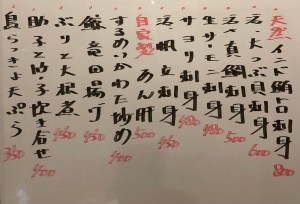 天然 インド鮪トロ刺身 800
活、大つぶ貝刺身 600
活〆真鯛刺身 500
生サーモン刺身 480
サヨリ刺身 480
活、帆立刺身 450
自家製 あん肝
するめいかわた炒め 400
鯨竜田揚げ 450
ぶりと大根煮 450
助子と白子炊き合せ 400
島らっきょ天ぷら 350